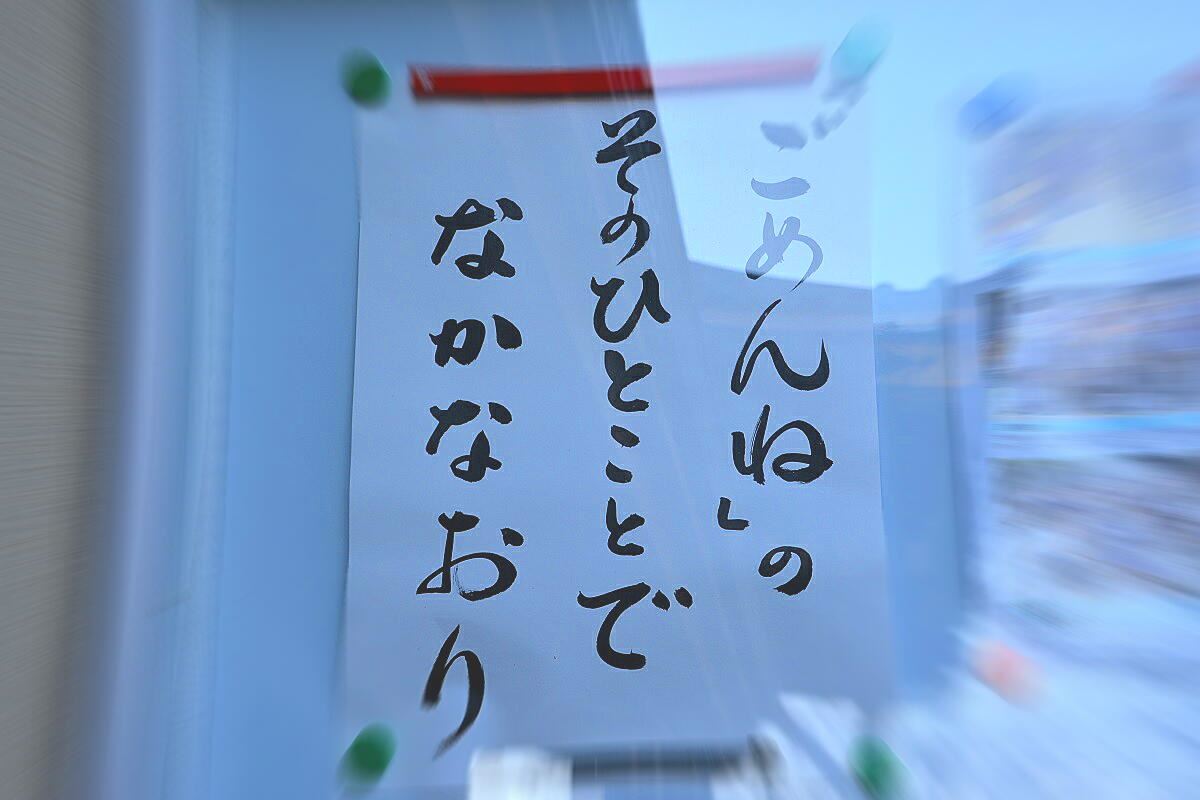 ごめんね」の
そのひとことで
なかなおり